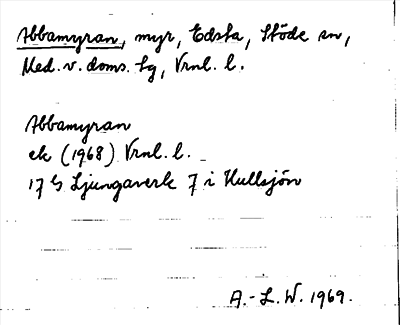 Abbamyran, myr, Edsta, Stöde sn,
Med. v. doms. tg, Vrnl. l.
Abbamyran
ek (1968) Vrnl. l.
17 G Ljungaverk 7 i Hullsjön
A.-L. W. 1969.